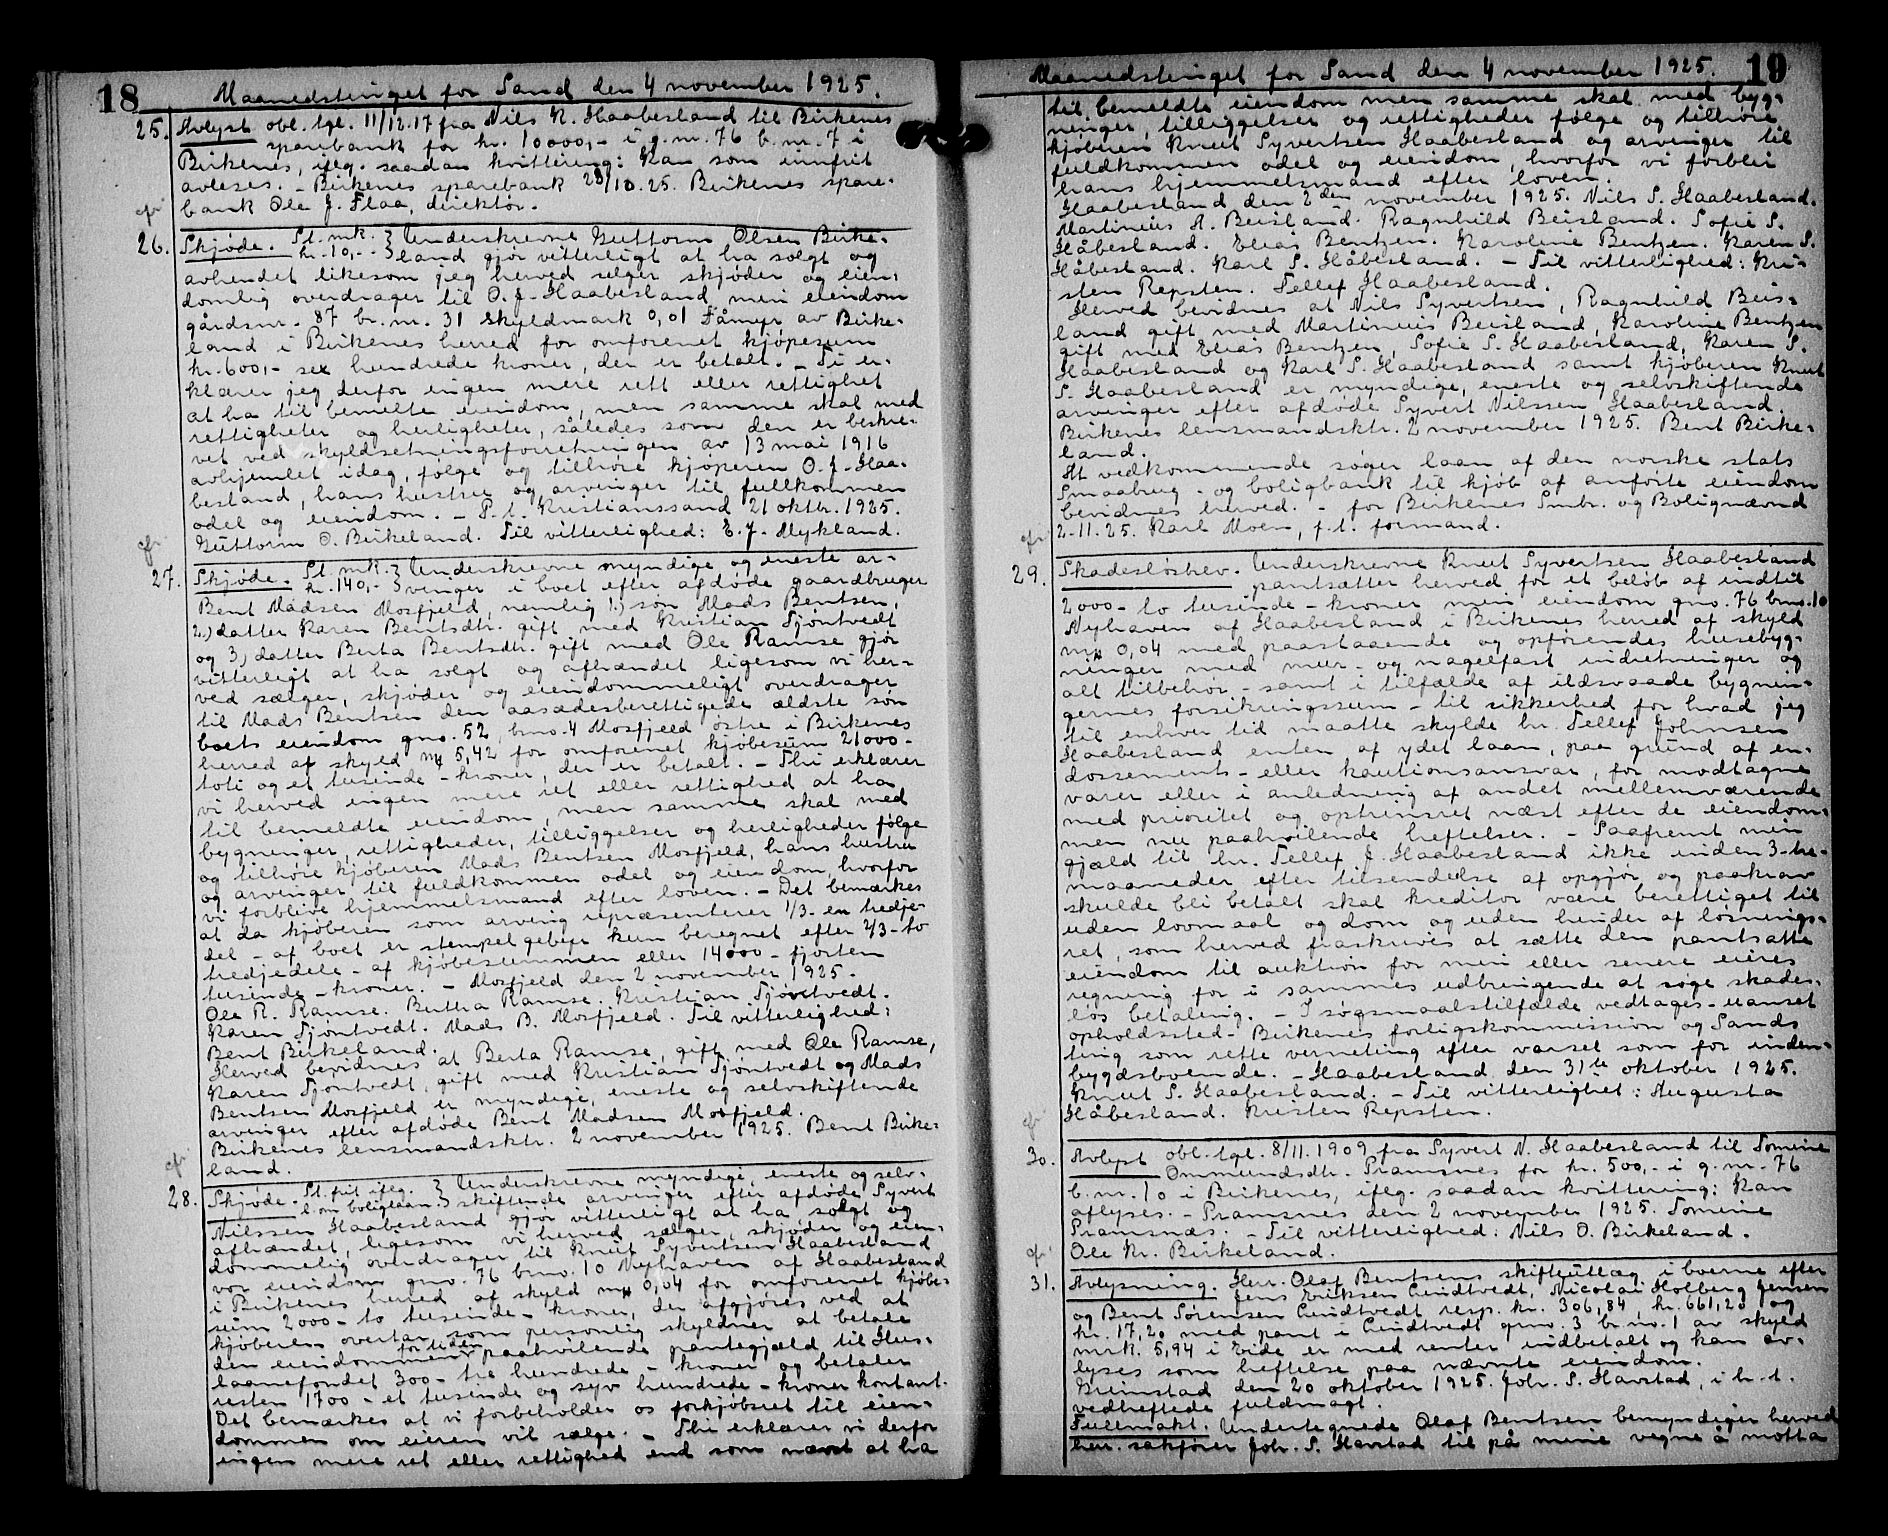 18
Maanedstinget for Sand den 4 november 1925.
25. Avlyst obl. tgl. 11/12.17 fra Nils N. Haabesland til Birkenes
sparebank for kr. 10000,- i g.nr. 76 b.nr. 7 i
Birkenes, ifølg. saadan kvittering: Kan som innfrit
avleses. - Birkenes sparebank 28/10.25. Birkenes spare-
bank Ole J. Flaa, direktør.
26. Skjøde. St. mk. kr. 10,- } Underskrevne Guttorm Olsen Birke-
land gjør vitterligt at ha solgt og
avhendet likesom jeg herved selger skjøder og eien-
domlig overdrager til O. J. Haabesland min eiendom
gårdsnr. 87 br.nr. 31 skyldmark 0,01 Fåmyr av Birke-
land i Birkenes herred for omforenet kjøpesum
kr. 600,- sex hundrede kroner, der er betalt. - Ti er-
klærer jeg derfor ingen mere rett eller rettighet
at ha til bemelte eiendom, men samme skal med
rettigheter og herligheter, således som den er beskre-
vet ved skyldsetningsforretningen av 13 mai 1916
avhjemlet idag, følge og tilhøre kjøperen O. J. Haa-
besland, hans hustru og arvinger til fullkommen
odel og eiendom. - P. t. Kristianssand 21 oktbr. 1925.
Guttorm O. Birkeland. Til vitterlighed: E. J. Mykland.
27. Skjøde. St. mk. kr. 140,- } Underskrevne myndige og eneste ar-
vinger i boet efter afdøde gaardbruger
Bent Madsen Mosfjeld, nemlig 1.) søn Mads Bentsen,
2.) datter Karen Bentsdtr. gift med Kristian Tjøntvedt
og 3, datter Berta Bentsdtr. gift med Ole Ramse gjør
vitterligt at ha solgt og afhændet ligesom vi her-
ved sælger, skjøder og eiendommeligt overdrager
til Mads Bentsen den aasædesberettigede ældste søn
boets eiendom gno. 52, brno. 4 Mosfjeld østre i Birkenes
herred af skyld mk 5,42 for omforenet kjøbesum 21000-
toti og et tusinde - kroner, der er betalt. - Thi erklærer
vi herved ingen mere ret eller rettighed at ha
til bemeldte eiendom, men samme skal med
bygninger, rettigheder, tilliggelser og herligheder følge
og tilhøre kjøberen Mads Bentsen Mosfjeld, hans hustru
og arvinger til fuldkommen odel og eiendom, hvorfor
vi forblive hjemmelsmand efter loven. - Det bemærkes
at da kjøberen som arving repræsenterer 1/3 - en tredje-
del - af boet er stempelgebyr kun beregnet efter 2/3 - to
tredjedele - af kjøbesummen eller 14000 - fjorten
tusinde - kroner. - Mosfjeld den 2 november 1925.
Ole R. Ramse. Bertha Ramse. Kristian Tjøntvedt.
Karen Tjøntvedt. Mads B. Mosfjeld. Til vitterlighed:
Bent Birkeland.
Herved bevidnes at Berta Ramse, gift med Ole Ramse,
Karen Tjøntvedt, gift med Kristian Tjøntvedt og Mads
Bentsen Mosfjeld er myndige, eneste og selvskiftende
arvinger efter afdøde Bent Madsen Mosfjeld.
Birkenes lensmandsktr. 2 november 1925. Bent Birke-
land.
28. Skjøde. St. frit ifølg. l. om boliglaan. } Underskrevne myndige, eneste og selv-
skiftende arvinger efter afdøde Syvert
Nilssen Haabesland gjør vitterligt at ha solgt og
afhændet, ligesom vi herved sælger, skjøder og eien-
dommelig overdrager til Knut Syvertsen Haabesland
vor eiendom gno. 76 brno. 10 Nyhaven af Haabesland
i Birkenes herred af skyld mk 0,04 for omforenet kjøbe-
sum 2000 - to tusinde - kroner, der afgjøres ved at
kjøberen overtar som personlig skyldner at betale
den eiendommen for tiden paahvilende pantegjæld til Hus-
laanefondet 300 - tre hundrede - kroner og betaler
resten 1700 - et tusinde og syv hundrede - kroner kontant.
Det bemærkes at vi forbeholder os forkjøbsret til eien-
dommen om eieren vil sælge. - Thi erklærer vi derfor
ingen mere ret eller rettighed end som nævnt at ha
19
Maanedstinget for Sand den 4 november 1925.
til bemeldte eiendom men samme skal med byg-
ninger, tilliggelser og rettigheder følge og tilhøre
kjøberen Knut Syvertsen Haabesland og arvinger til
fuldkommen odel og eiendom, hvorfor vi forblir
hans hjemmelsmand efter loven.
Haabesland den 2den november 1925. Nils S. Haabesland.
Martinius A. Beisland. Ragnhild Beisland. Sofie S.
Håbesland. Elias Bentzen. Karoline Bentzen. Karen S.
Håbesland. Karl S. Håbesland. - Til vitterlighed: Kri-
sten Repsten. Tellef Haabesland.
Herved bevidnes at Nils Syvertsen, Ragnhild Beis-
land gift med Martinius Beisland, Karoline Bentzen
gift med Elias Bentzen, Sofie S. Haabesland, Karen S.
Haabesland og Karl S. Haabesland samt kjøberen Knut
S. Haabesland er myndige, eneste og selvskiftende
arvinger efter afdøde Syvert Nilssen Haabesland.
Birkenes lensmandsktr. 2 november 1925. Bent Birke-
land.
At vedkommende søger laan af den norske stats
Smaabrug - og boligbank til kjøb af anførte eiendom
bevidnes herved. - for Birkenes Smbr. og Bolignævnd
2-11.25. Karl Moen, p.t. formand.
29. Skadesløsbrev. Underskrevne Knut Syvertsen Haabesland
pantsætter herved for et beløb af indtil
2000 - to tusinde - kroner min eiendom gno. 76 brno. 10
Nyhaven af Haabesland i Birkenes herred af skyld
mk 0,04 med paastaaende og opførendes husebyg-
ninger med mur - og nagelfast indretninger og
alt tilbehør - samt i tilfælde af ildsvaade bygnin-
gernes forsikringssum - til sikkerhed for hvad jeg
til enhver tid maatte skylde hr. Tellef Johnsen
Haabesland enten af ydet laan, paa grund af en-
dossements - eller kautionsansvar, for modtagne
varer eller i anledning af andet mellemværende
med prioritet og optrinsret næst efter de eiendom-
men nu paahvilende heftelser. - Saafremt min
gjæld til hr. Tellef J. Haabesland ikke inden 3 - tre -
maaneder efter tilsendelse af opgjør og paakrav
skulde bli betalt skal kreditor være berettiget til
uden lovmaal og dom og uden hinder af løsnings-
ret, som herved fraskrives at sætte den pantsatte
eiendom til auktion for min eller senere eieres
regning for i sammes udbringende at søge skades-
løs betaling. - I søgsmaalstilfælde vedtages - uanset
opholdssted - Birkenes forligskommission og Sands
ting som rette verneting efter varsel som for inden-
bygdsboende. - Haabesland den 31te oktober 1925.
Knut S. Haabesland. - Til vitterlighet: Augusta
Håbesland. Kristen Repsten.
30. Avlyst obl. tgl. 8/11.1909 fra Syvert N. Haabesland til Tomine
Ommundsdtr. Pramsnes for kr. 500,- i g.nr. 76
b.nr. 10 i Birkenes, ifølg. saadan kvittering: Kan
aflyses. - Pramsnes den 2 november 1925. Tomine
Pramsnæs. - Til vitterlighed: Nils O. Birkeland.
Ole Kr. Birkeland.
31. Avlysning. Herr. Olaf Bentsens skifteutlæg i boerne efter
Jens Eriksen Lindtvedt, Nicolai Holberg Jensen
og Bent Sørensen Lindtvedt resp. kr. 306,84, kr. 661,23 og
kr. 17,20 med pant i Lindtvedt gno. 3 br.no. 1 av skyld
mrk. 5,94 i Eide er med renter indbetalt og kan av-
lyses som heftelse paa nævnte eiendom.
Grimstad den 20 oktober 1925. Joh. S. Havstad, i h. t.
vedheftede fuldmagt.
Fullmakt. Undertegnede Olaf Bentsen bemyndiger herved
herr. sakfører Joh. S. Havstad til på mine vegne å motta